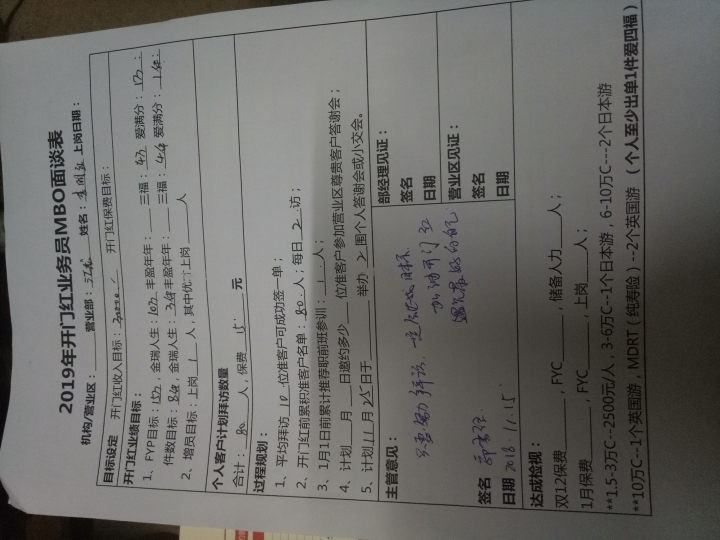 2019年开门红业务员MBO面谈表
机构/营业区： 营业部： 姓名： 上岗日期：
目标设定 开门红收入目标： 开门红保费目标：
开门红业绩目标：
1、FYP目标：15万，金瑞人生：10万 丰盈年年： 三福：4万 爱满分：1万；
件数目标：8件，金瑞人生：3件 丰盈年年： 三福：4件 爱满分：1件；
2、增员目标：上岗 1 人，其中优才上岗 人
个人客户计划拜访数量
合计： 80 人，保费 15 元
过程规划：
1、平均拜访 10 位准客户可成功签一单；
2、开门红前累积准客户名单： 80 人；每日 2 访；
3、1月1日前累计推荐职前班参训： 1 人；
4、计划 月 日邀约多少 位准客户参加营业区尊贵客户答谢会；
5、计划11月25日于 举办 2 围个人答谢会或小交会。
主管意见：
勤拜访，定能达成目标
加油开门红
遇见最好的自己
签名
日期 2018.11.15.
部经理见证：
签名
日期
营业区见证：
签名
日期
达成检视：
双12保费 ，FYC ，储备人力 人；
1月保费 ，FYC ，上岗 人；
**1.5-3万C--2500元/人，3-6万C--1个日本游，6-10万C---2个日本游
**10万C--1个英国游，MDRT（纯寿险）--2个英国游 （个人至少出单1件爱四福）